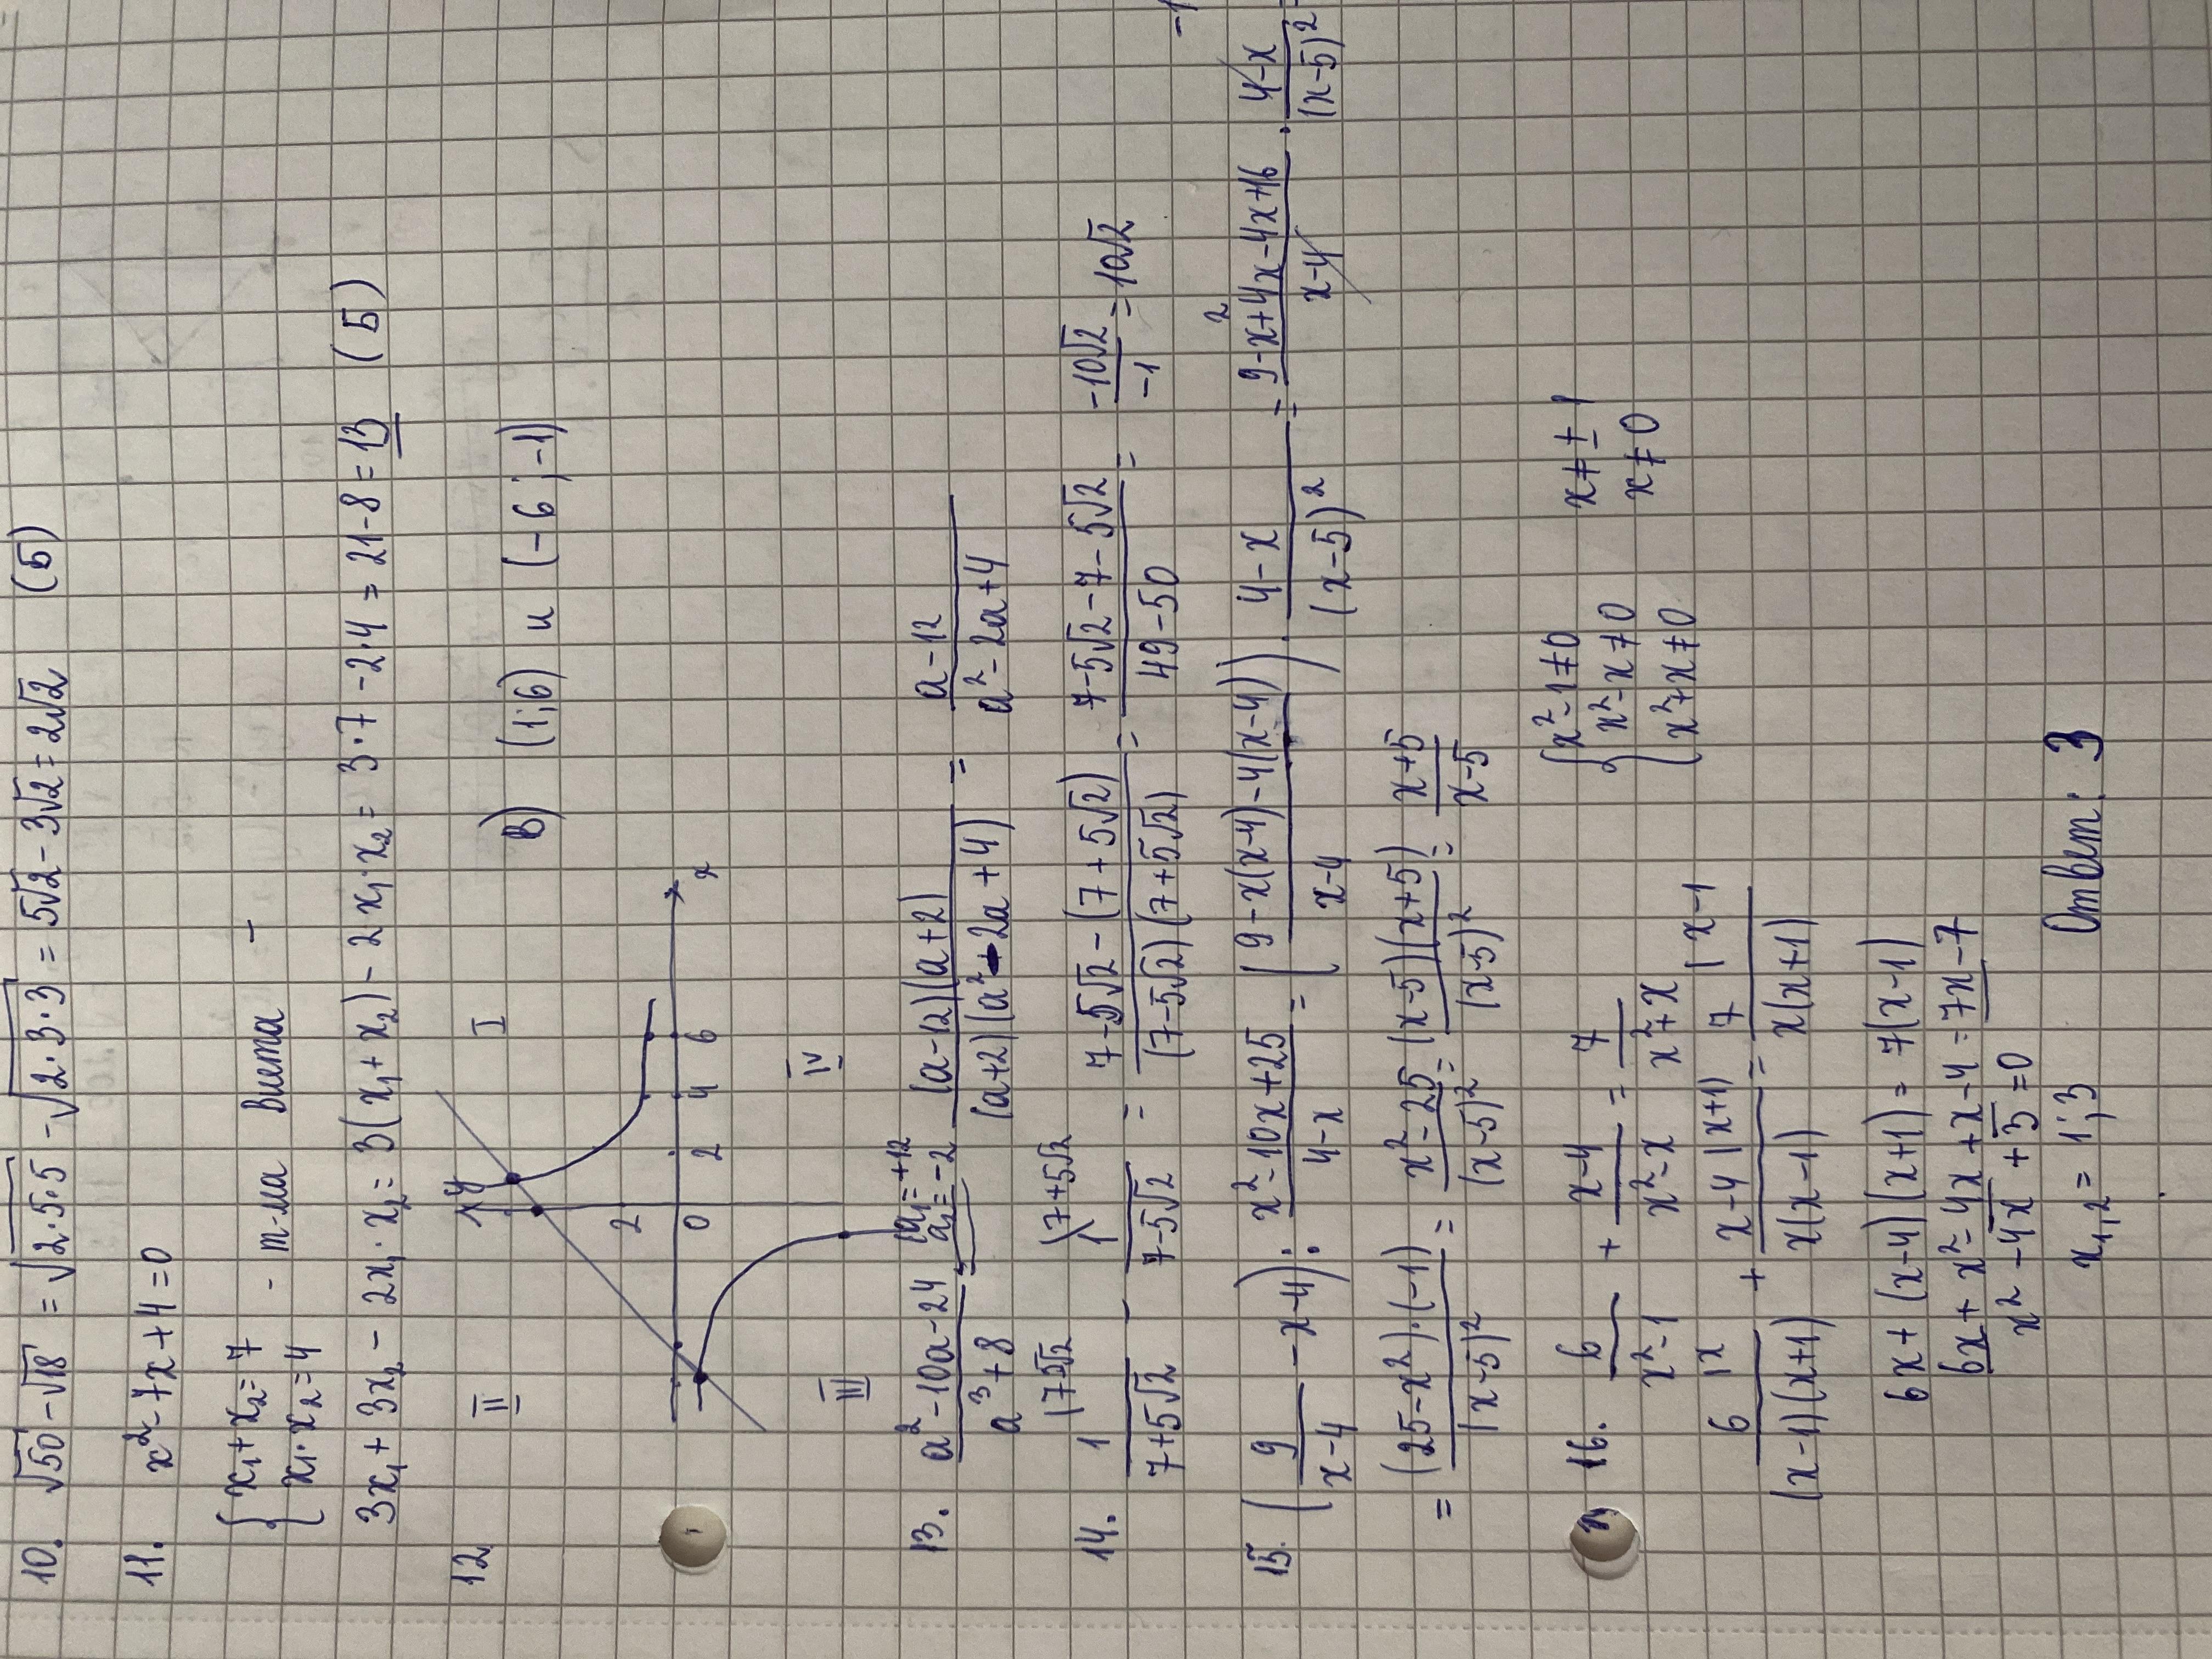 10. √50 - √18 = √2·5·5 - √2·3·3 = 5√2 - 3√2 = 2√2 (Б)
11. x² - 7x + 4 = 0
{ x₁ + x₂ = 7
{ x₁ · x₂ = 4 - т-ма Виета -
3x₁ + 3x₂ - 2x₁ · x₂ = 3(x₁ + x₂) - 2x₁ · x₂ = 3·7 - 2·4 = 21 - 8 = 13 (Б)
12 y II I В) (1;6) и (-6;-1)
2 0 2 4 6 x
III IV
13. (a² - 10a - 24)/(a³ + 8) = [a₁ = +12 a₂ = -2] = (a-12)(a+2)/((a+2)(a² - 2a + 4)) = (a-12)/(a² - 2a + 4)
14. 1/(7+5√2) - 1/(7-5√2) = (7-5√2-(7+5√2))/((7-5√2)(7+5√2)) = (7-5√2-7-5√2)/(49-50) = -10√2/-1 = 10√2
15. (9/(x-4) - x-4) : (x²-10x+25)/(4-x) = ((9-x(x-4)-4(x-4))/(x-4)) · (4-x)/(x-5)² = (9-x²+4x-4x+16)/(x-4) · (4-x)/(x-5)² -1
= (25-x²)·(-1)/(x-5)² = (x²-25)/(x-5)² = (x-5)(x+5)/(x-5)² = (x+5)/(x-5)
16. 6/(x²-1) + (x-4)/(x²-x) = 7/(x²+x) { x²-1≠0 x≠±1
{ x²-x≠0 x≠0
{ x²+x≠0
6 |x/((x-1)(x+1)) + x-4 |x+1)/(x(x-1)) = 7 |x-1/(x(x+1))
6x + (x-4)(x+1) = 7(x-1)
6x + x² - 4x + x - 4 = 7x - 7
x² - 4x + 3 = 0
x₁,₂ = 1; 3 Ответ: 3